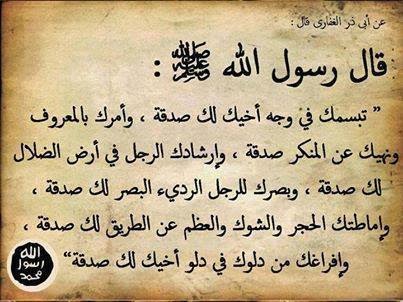 عن أبي ذر الغفاري قال :
قال رسول الله ﷺ :
" تبسمك في وجه أخيك لك صدقة ، وأمرك بالمعروف
ونهيك عن المنكر صدقة ، وإرشادك الرجل في أرض الضلال
لك صدقة ، وبصرك للرجل الرديء البصر لك صدقة ،
وإماطتك الحجر والشوك والعظم عن الطريق لك صدقة ،
وإفراغك من دلوك في دلو أخيك لك صدقة"
الله
رسول
محمد